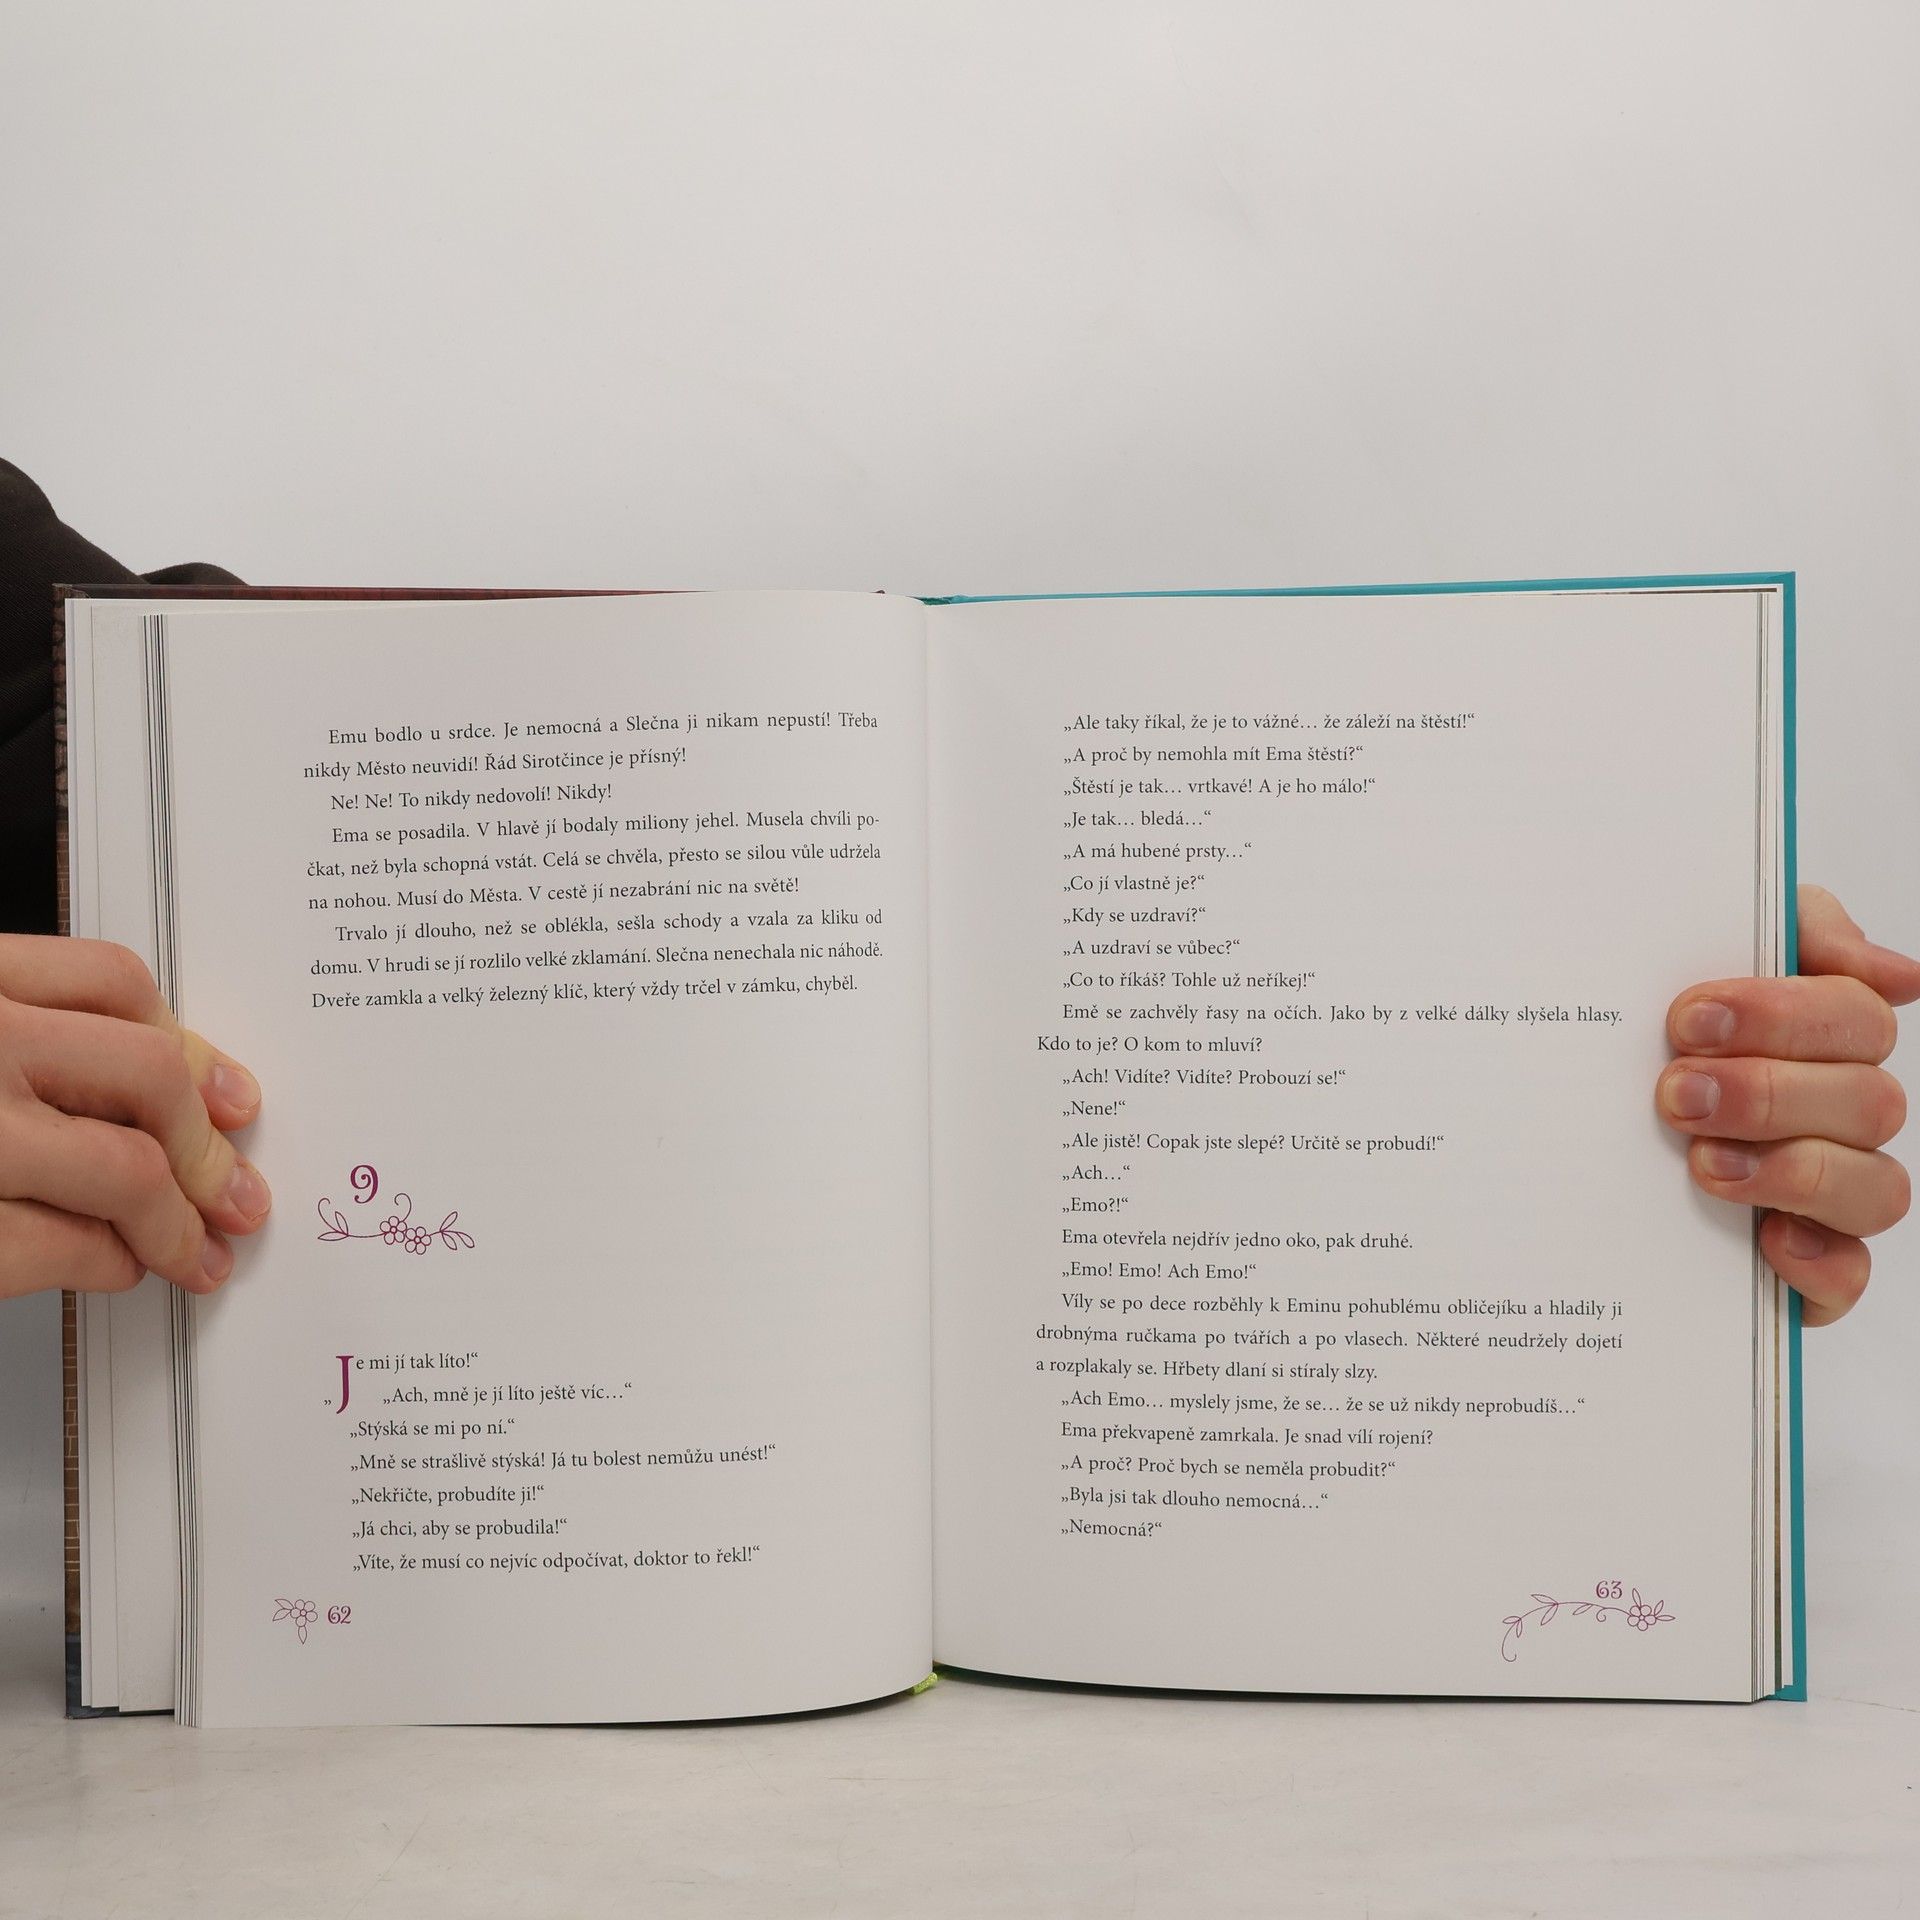 Emu bodlo u srdce. Je nemocná a Slečna ji nikam nepustí! Třeba
nikdy Město neuvidí! Řád Sirotčince je přísný!
Ne! Ne! To nikdy nedovolí! Nikdy!
Ema se posadila. V hlavě jí bodaly miliony jehel. Musela chvíli po-
čkat, než byla schopná vstát. Celá se chvěla, přesto se silou vůle udržela
na nohou. Musí do Města. V cestě jí nezabrání nic na světě!
Trvalo jí dlouho, než se oblékla, sešla schody a vzala za kliku od
domu. V hrudi se jí rozlilo velké zklamání. Slečna nenechala nic náhodě.
Dveře zamkla a velký železný klíč, který vždy trčel v zámku, chyběl.
9
„Je mi jí tak líto!“
„Ach, mně je jí líto ještě víc…“
„Stýská se mi po ní.“
„Mně se strašlivě stýská! Já tu bolest nemůžu unést!“
„Nekřičte, probudíte ji!“
„Já chci, aby se probudila!“
„Víte, že musí co nejvíc odpočívat, doktor to řekl!“
62
„Ale taky říkal, že je to vážné… že záleží na štěstí!“
„A proč by nemohla mít Ema štěstí?“
„Štěstí je tak… vrtkavé! A je ho málo!“
„Je tak… bledá…“
„A má hubené prsty…“
„Co jí vlastně je?“
„Kdy se uzdraví?“
„A uzdraví se vůbec?“
„Co to říkáš? Tohle už neříkej!“
Emě se zachvěly řasy na očích. Jako by z velké dálky slyšela hlasy.
Kdo to je? O kom to mluví?
„Ach! Vidíte? Vidíte? Probouzí se!“
„Nene!“
„Ale jistě! Copak jste slepé? Určitě se probudí!“
„Ach…“
„Emo?!“
Ema otevřela nejdřív jedno oko, pak druhé.
„Emo! Emo! Ach Emo!“
Víly se po dece rozběhly k Eminu pohublému obličejíku a hladily ji
drobnýma ručkama po tvářích a po vlasech. Některé neudržely dojetí
a rozplakaly se. Hřbety dlaní si stíraly slzy.
„Ach Emo… myslely jsme, že se… že se už nikdy neprobudíš…“
Ema překvapeně zamrkala. Je snad vílí rojení?
„A proč? Proč bych se neměla probudit?“
„Byla jsi tak dlouho nemocná…“
„Nemocná?“
63